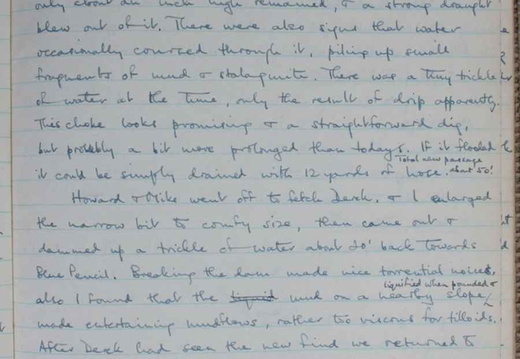 only about an inch high remained, & a strong draught
blew out of it. There were also signs that water
occasionally coursed through it, piling up small
fragments of mud & stalagmite. There was a tiny trickle
of water at the time, only the result of drip apparently.
This choke looks promising & a straightforward dig,
but probably a bit more prolonged than todays. If it flooded
it could be simply drained with 12 yards of hose. Total new passage about 50'.
Howard & Mike went off to fetch Derek. & I enlarged
the narrow bit to comfy size, then came out &
dammed up a trickle of water about 20' back towards
Blue Pencil. Breaking the dam made nice torrential noises,
also I found that the liquid mud on a nearby slope liquified when pounded &
made entertaining mudflows, rather too viscous for tilloids.
After Derek had seen the new find we returned to